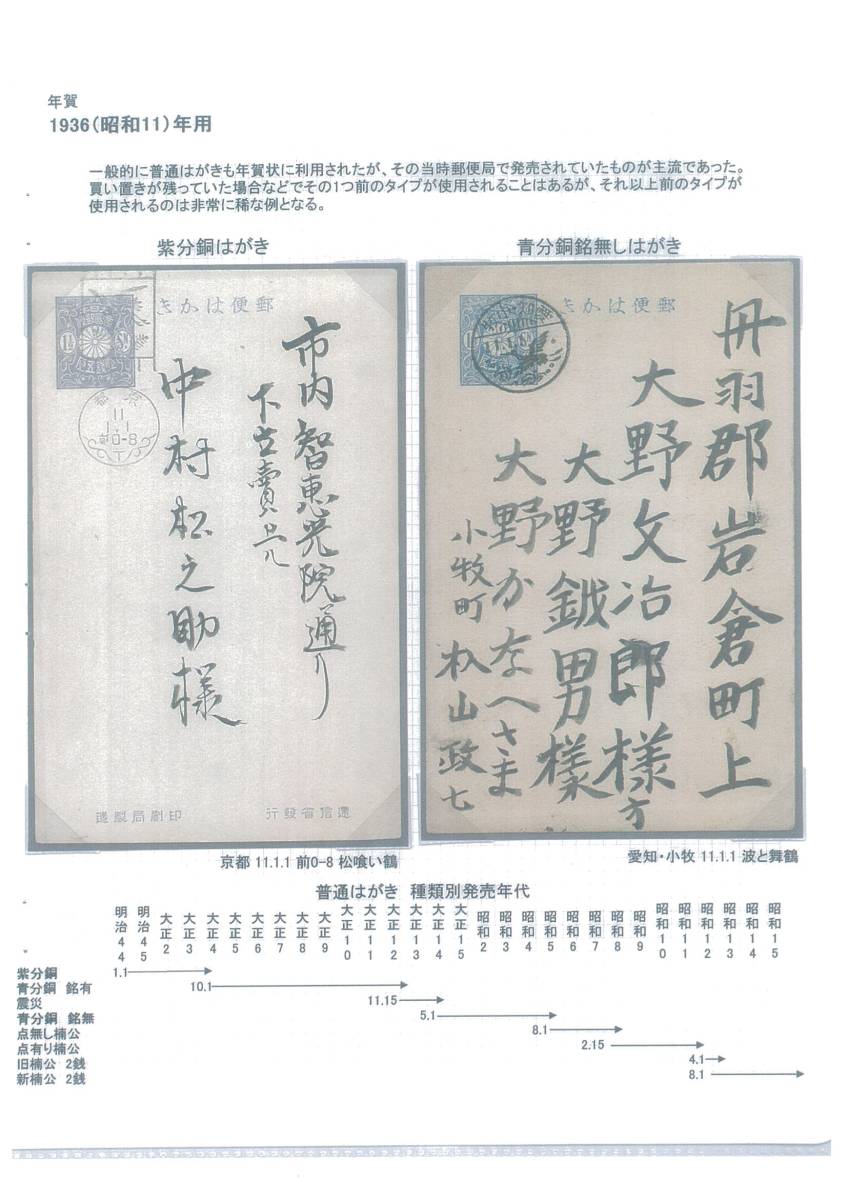 年賀
1936(昭和11)年用
一般的に普通はがきも年賀状に利用されたが、その当時郵便局で発売されていたものが主流であった。
買い置きが残っていた場合などでその1つ前のタイプが使用されることはあるが、それ以上前のタイプが
使用されるのは非常に稀な例となる。
紫分銅はがき
きかは便郵
市内智恵光院通り
下立賣上ル
中村松之助様
11
1.1
前0-8
造製局刷印
行發省信逓
京都 11.1.1 前0-8 松喰い鶴
青分銅銘無しはがき
きかは便郵
11.1.1
丹羽郡岩倉町上
大野文治郎様方
大野鉞男様
大野かなへさま
小牧町
杁山政七
愛知・小牧 11.1.1 波と舞鶴
普通はがき 種類別発売年代
明治44 明治45 大正2 大正3 大正4 大正5 大正6 大正7 大正8 大正9 大正10 大正11 大正12 大正13 大正14 大正15 昭和2 昭和3 昭和4 昭和5 昭和6 昭和7 昭和8 昭和9 昭和10 昭和11 昭和12 昭和13 昭和14 昭和15
紫分銅 1.1
青分銅 銘有 10.1
震災 11.15
青分銅 銘無 5.1
点無し楠公 8.1
点有り楠公 2.15
旧楠公 2銭 4.1
新楠公 2銭 8.1